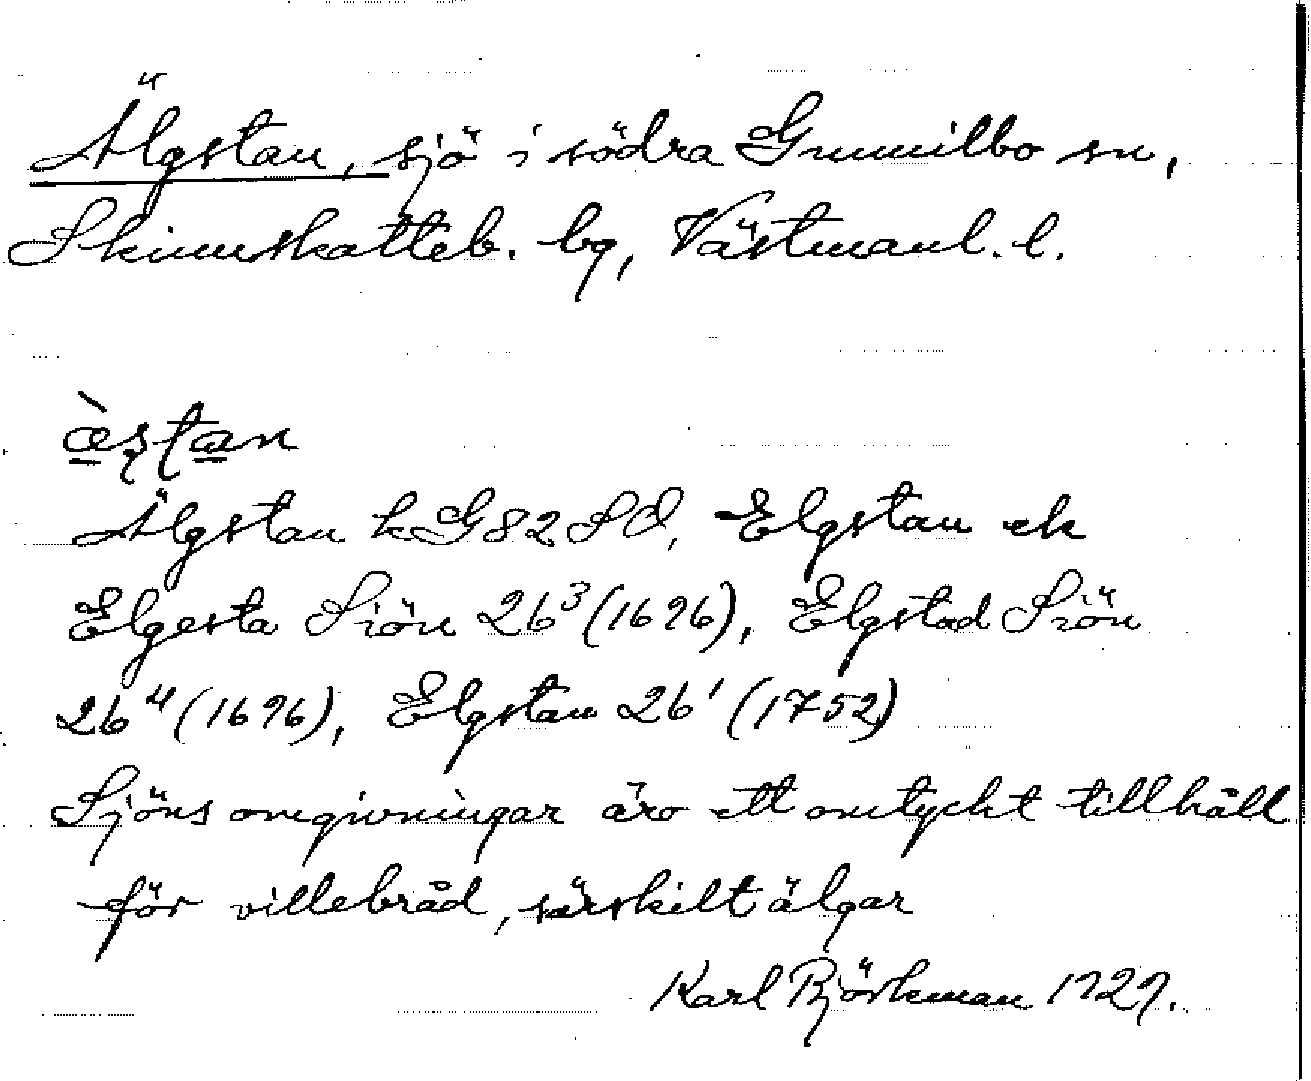 Älgstan, sjö i södra Gunnilbo sn,
Skinnskatteb. bg, Västmanl. l.
æ̀ștan
Älgstan kG82SO, Elgstan ek
Elgesta Siön 26³ (1696), Elgstad Siön
26⁴ (1696), Elgstan 26¹ (1752)
Sjöns omgivningar äro ett omtyckt tillhåll
för villebråd, särskilt älgar
Karl Björkman 1927.